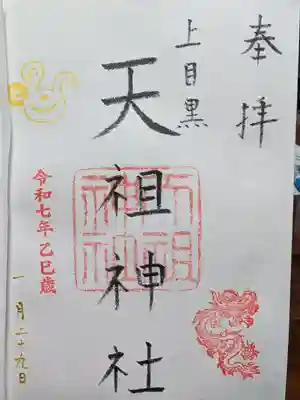 奉拝
上目黒
天祖神社
令和七年乙巳歳
一月二十九日